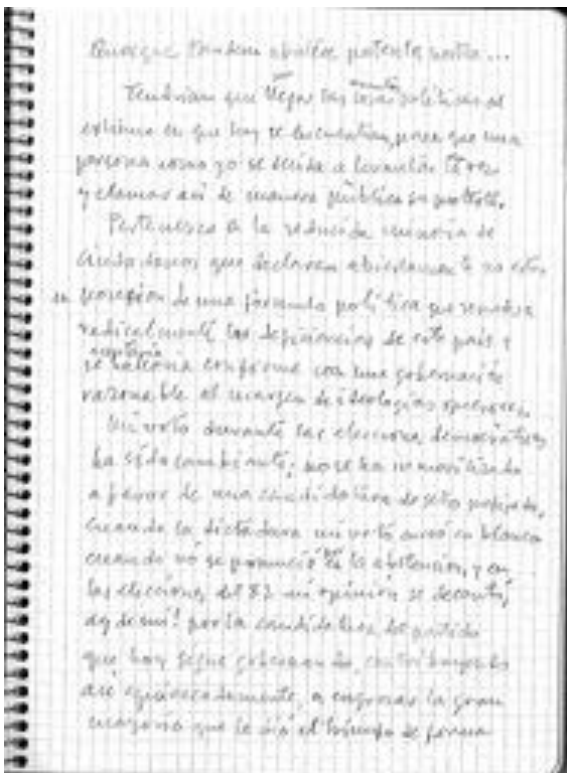 Quousque tandem abutere patientia nostra...
Tendrían que llegar las cosas políticas al
extremo en que hoy se encuentran, para que una
persona como yo se decida a levantar la voz
y clamar así de manera pública su protesta.
Pertenezco a la reducida minoría de
ciudadanos que declaran abiertamente no estar
en posesión de una fórmula política que remedie
radicalmente las deficiencias de este país y
se conforme con una gobernación
razonable al margen de ideologías
Mi voto durante las elecciones democráticas
ha sido cambiante; no se ha movilizado
a favor de una candidatura
cuando la dictadura mi voto en blanco
cuando no se pronunció la abstención, y en
las elecciones del 82 mi opinión se decantó,
ay de mi! por la candidatura del partido
que hoy sigue gobernando, contribuyendo
así equivocadamente, a engrosar la gran
mayoría que le dió el triunfo de forma